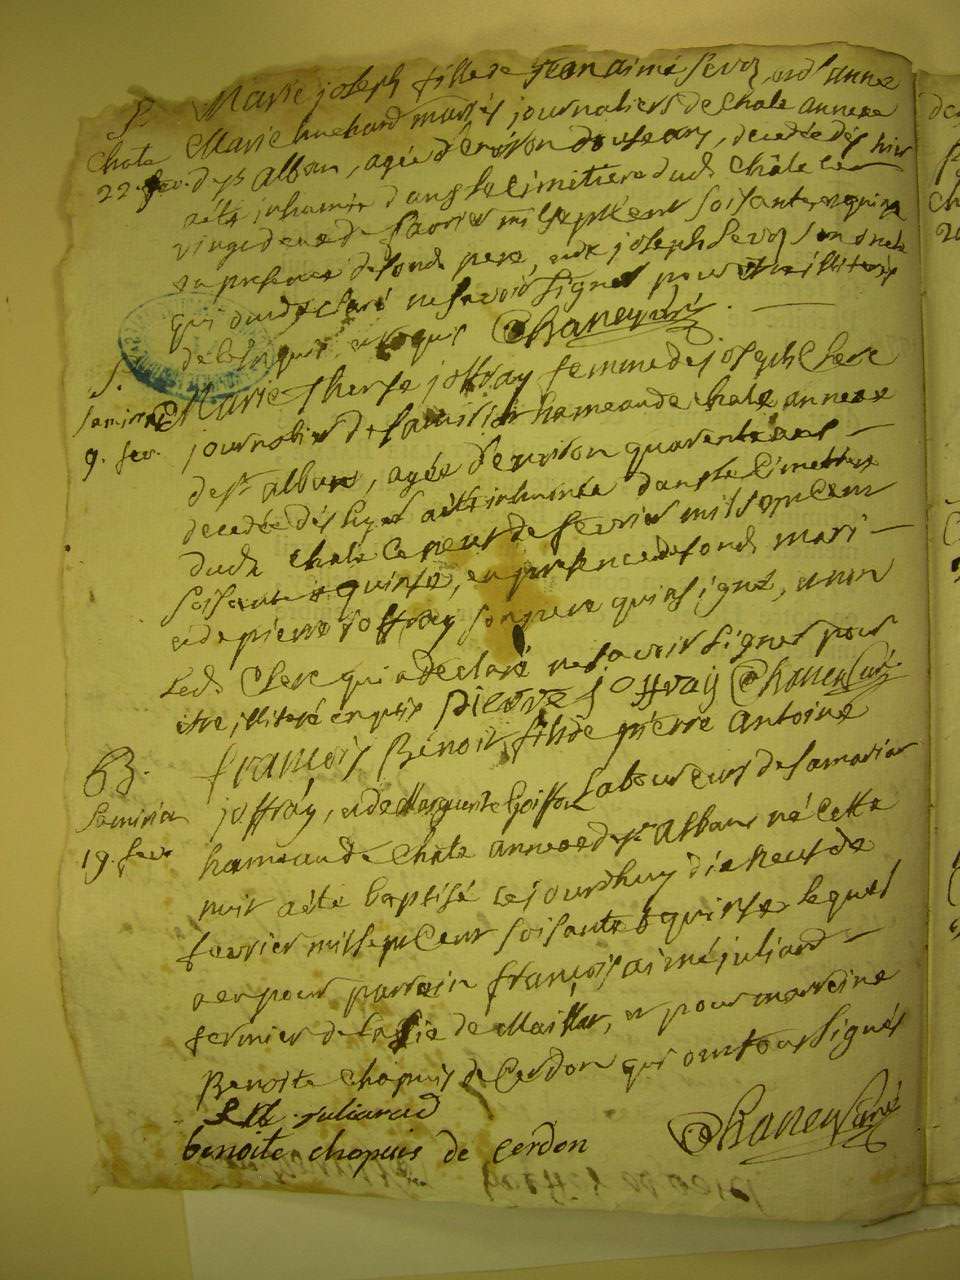 S.
Chale
22 fev.
Marie joseph fille de jean aimé Sevoz, et d'anne
Marie huchard mariés journaliers de Chale annexe
de st alban, agée d'environ douse ans, decedée dès hier
a été inhumée dans le Cimetiere dud. Châle ce
vingt deux de fevrier mil sept Cent soisante et quinse
en presence de sond. pere, et de joseph Sevoz son oncle
qui ont declaré ne savoir signer pour être illiterés
de ce enquis et requis Chaney Curé
S.
Samiriat
9. fev.
Marie Therese joffray femme de joseph Clerc
journalier de Samiriat hameau de Chale annexe
de st alban, agée d'environ quarente ans
decedée dès hyer a été inhumée dans le Cimettiere
dud. Chale Ce neuf de fevrier mil sept Cent
soisante et quinse, en presence de sond. mari
et de pierre joffray son pere qui a signé, et non
Led. Clerc qui a declaré ne savoir signer pour
être illiteré enquis pierre joffray Chaney Curé
B.
Samiriat
19. fevr
françois Benoit fils de pierre antoine
joffray, et de Marguerite Goiffon Laboureurs de Samariat
hameau de Chale annexe de st Alban né Cette
nuit a été baptisé ce jourdhuy dix neuf de
fevrier mil sept Cent soisante et quinse lequel
a eu pour parrain françois aimé juliard
fermier de la de Maillat, et pour marreine
Benoite Chapuis de Cerdon qui ont tous signés
juliard
benoite chapuis de cerdon Chaney Curé